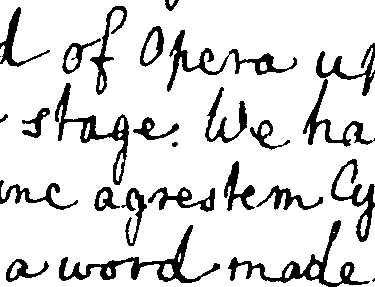 of Opera
stage. We ha
unc agrestem Cy
a word made